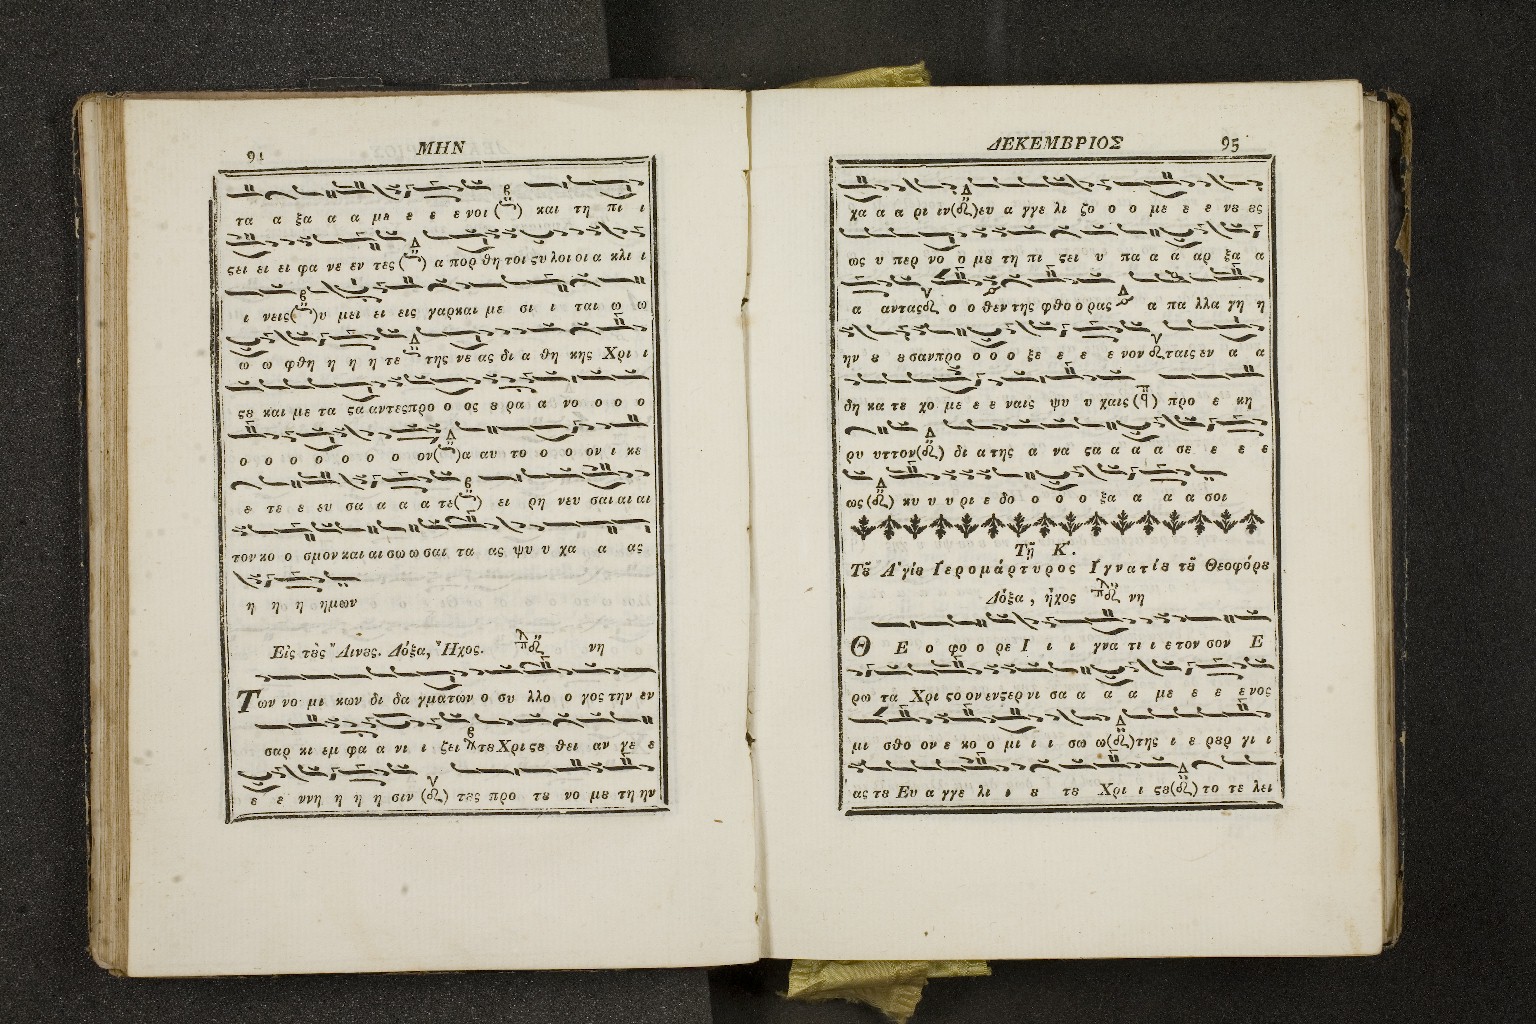 ΜΗΝ
τα α ξα α α με ε ε ε νοι ( ) και τη πι ι
ςει ει ει φα νε εν τες ( ) α πορ θη τοι ςυ λοι οι α κλι ι
ι νεις( )υ μει ει εις γαρ και με σι ι ται ω ω
ω ω φθη η η η τε της νε ας δι α θη κης Χρι ι
ςȣ και με τα ςα αντες προ ο ος ȣ ρα α νο ο ο ο
ο ο ο ο ο ο ο ον( )α αυ το ο ο ον ι κε
ε τε ε ευ σα α α α τε( ) ει ρη νευ σαι αι αι
τον κο ο σμον και αι σω ω σαι τα ας ψυ υ χα α ας
η η η ημων
Εἰς τȣ̀ς Αἴνȣς. Δόξα, Ἦχος. νη
Των νο μι κων δι δα γματων ο συ λλο ο γος την εν
σαρ κι εμ φα α νι ι ζει τȣ Χριςȣ θει αν γε ε
ε ε ννη η η η σιν ( ) τες προ τȣ νο μȣ τη ην
ΔΕΚΕΜΒΡΙΟΣ 95
χα α α ρι ιν( )ευ α γγε λι ζο ο ο με ε ε νȣ ȣς
ως υ περ νο ο μȣ τη πι ςει υ πα α α αρ ξα α
α αντας ο ο θεν της φθο ο ρας α πα λλα γη η
ην ȣ ȣσαν προ ο ο ο ξε ε ε ε νον ταις εν α α
δη κα τε χο με ε ε ναις ψυ υ χαις ( ) προ ε κη
ρυ υττον( ) δι α της α να ςα α α α σε ε ε ε
ως ( ) κυ υ υ ρι ε δο ο ο ο ξα α α α σοι
Τῇ Κ΄.
Τȣ͂ Ἁγίȣ Ἱερομάρτυρος Ἰγνατίȣ τȣ͂ Θεοφόρȣ
Δόξα, ἦχος νη
Θ Ε ο φο ο ρε Ι ι ι γνα τι ι ε τον σον Ε
ρω τα Χρι ςο ον ενςερ νι σα α α α με ε ε ενος
μι σθο ον ε κο ο μι ι ι σω ω( )της ι ε ρȣρ γι ι
ας τȣ Ευ α γγε λι ι ȣ τȣ Χρι ι ςȣ( ) το τε λει